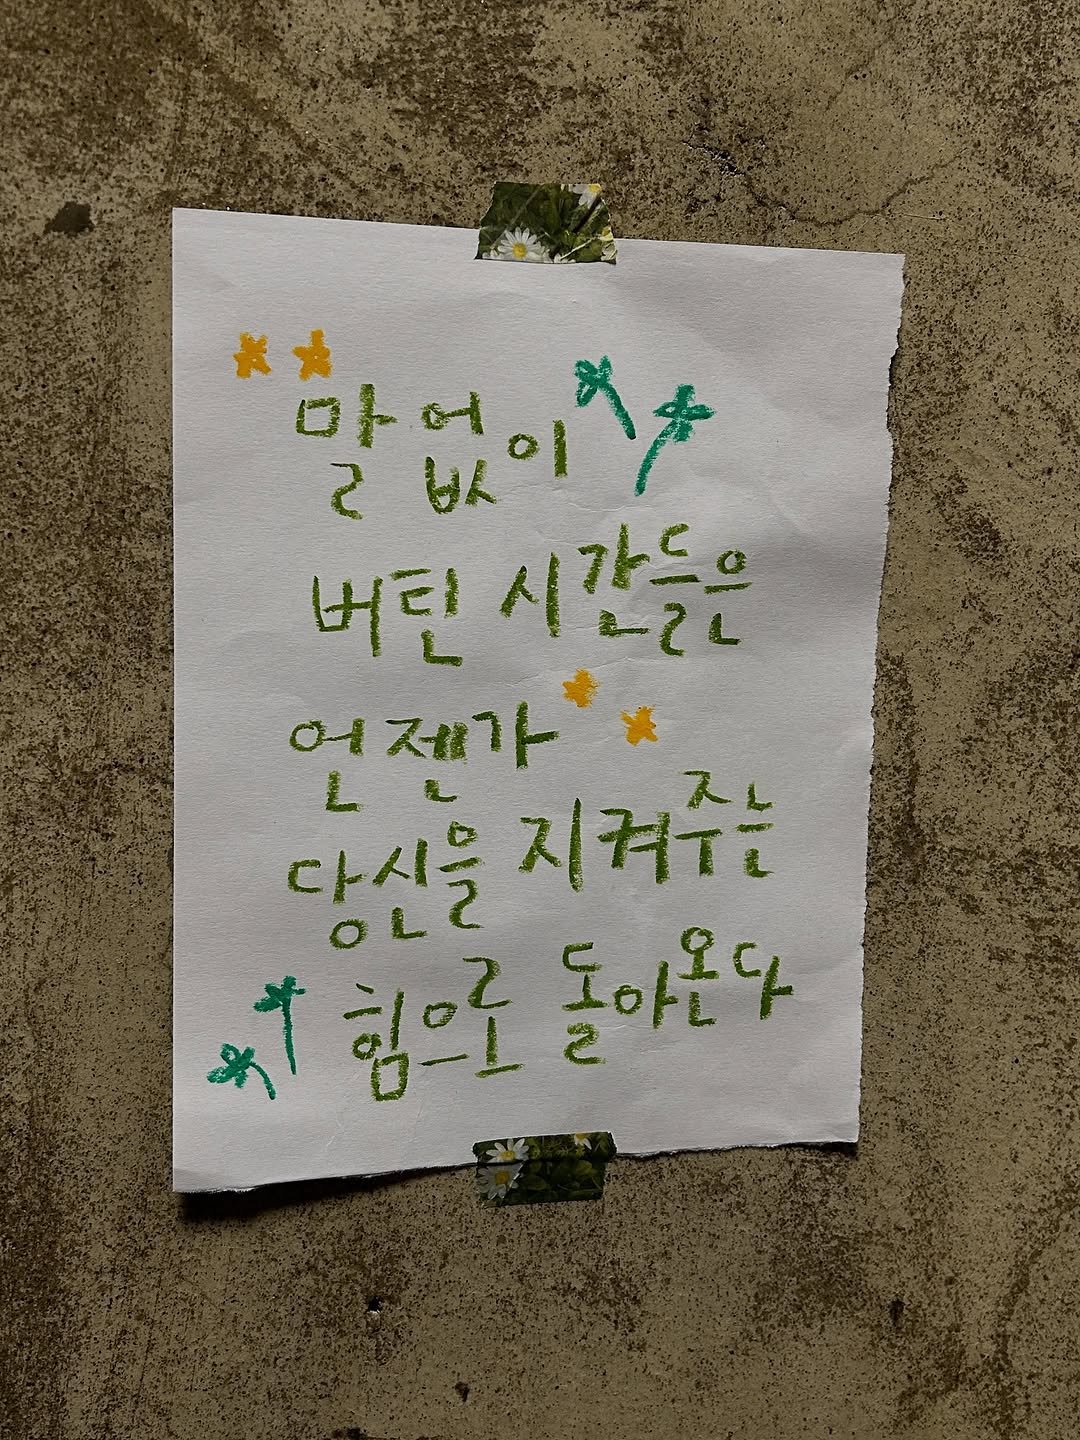 말 없이
버틴 시간들은
언젠가
당신을 지켜주는
힘으로 돌아온다